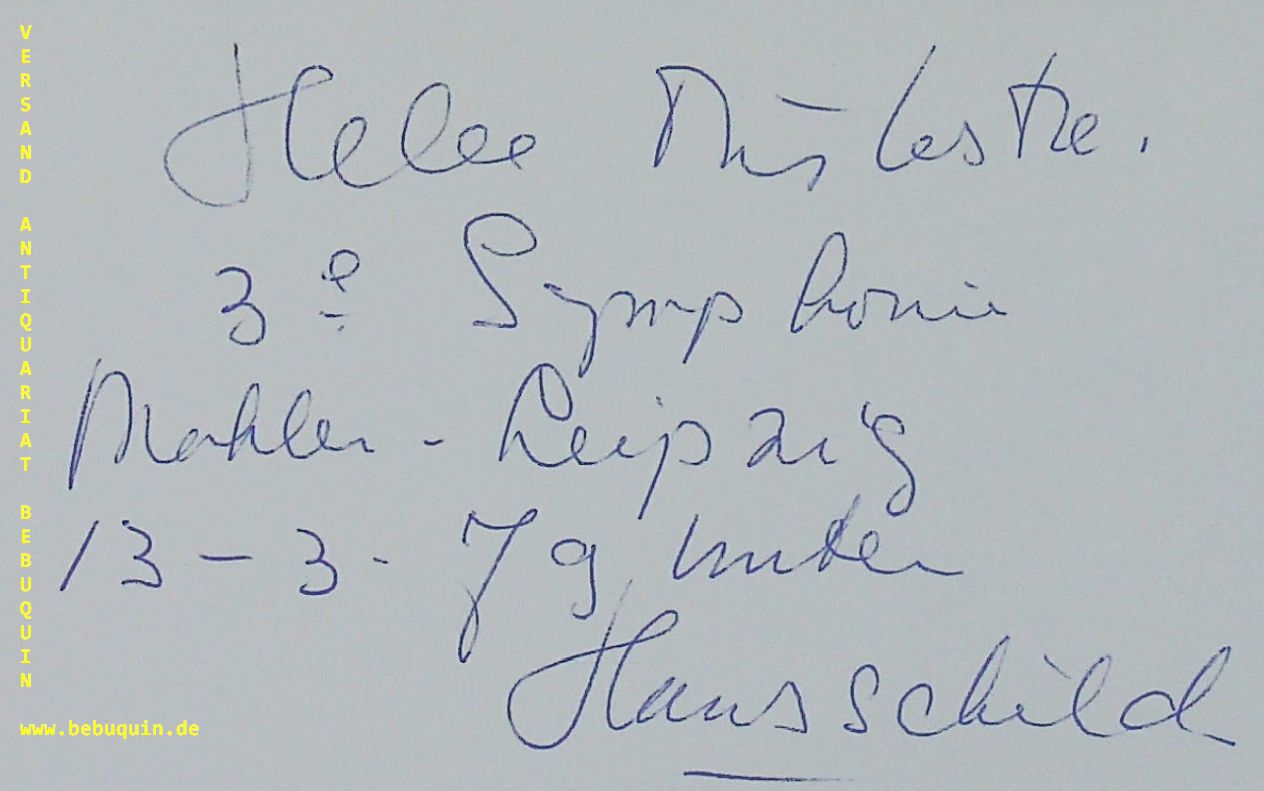 3e Symphonie
Mahler - Leipzig
13 - 3 - 79 unter
Hausschild
VERSAND ANTIQUARIAT BEBUQUIN
www.bebuquin.de